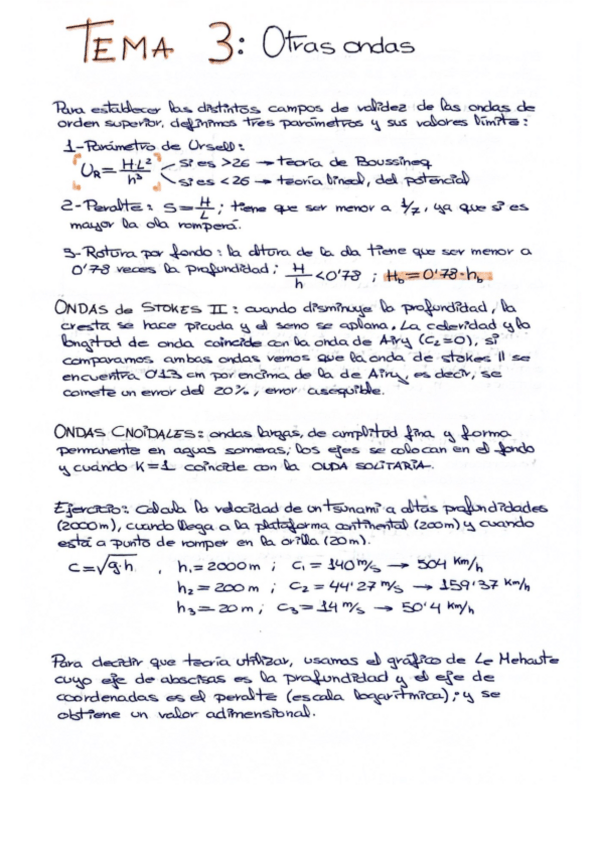 TEMA 3: Otras ondas
Para establecer los distintos campos de validez de las ondas de
orden superior, definimos tres parámetros y sus valores límite:
1-Parámetro de Ursell:
UR = HL²/h³ si es >26 → teoría de Boussinesq
si es <26 → teoría lineal, del potencial
2-Peralte: S = H/L; tiene que ser menor a 1/7, ya que si es
mayor la ola romperá.
3-Rotura por fondo: la altura de la ola tiene que ser menor a
0'78 veces la profundidad; H/h <0'78 ; Hb = 0'78·hb
ONDAS de STOKES II: cuando disminuye la profundidad, la
cresta se hace picuda y el seno se aplana. La celeridad y la
longitud de onda coincide con la onda de Airy (C₂=0), si
comparamos ambas ondas vemos que la onda de stokes II se
encuentra 0'13 cm por encima de la de Airy, es decir, se
comete un error del 20%, error asequible.
ONDAS CNOIDALES: ondas largas, de amplitud fina y forma
permanente en aguas someras; los ejes se colocan en el fondo
y cuando K=1 coincide con la ONDA SOLITARIA.
Ejercicio: calcula la velocidad de un tsunami a altas profundidades
(2000m), cuando llega a la plataforma continental (200m) y cuando
está a punto de romper en la orilla (20m).
C=√g·h , h₁=2000m ; C₁ = 140 m/s → 504 Km/h
h₂=200m ; C₂=44'27 m/s → 159'37 Km/h
h₃=20m ; C₃=14 m/s → 50'4 Km/h
Para decidir que teoría utilizar, usamos el gráfico de Le Mehaute
cuyo eje de abscisas es la profundidad y el eje de
coordenadas es el peralte (escala logarítmica); y se
obtiene un valor adimensional.